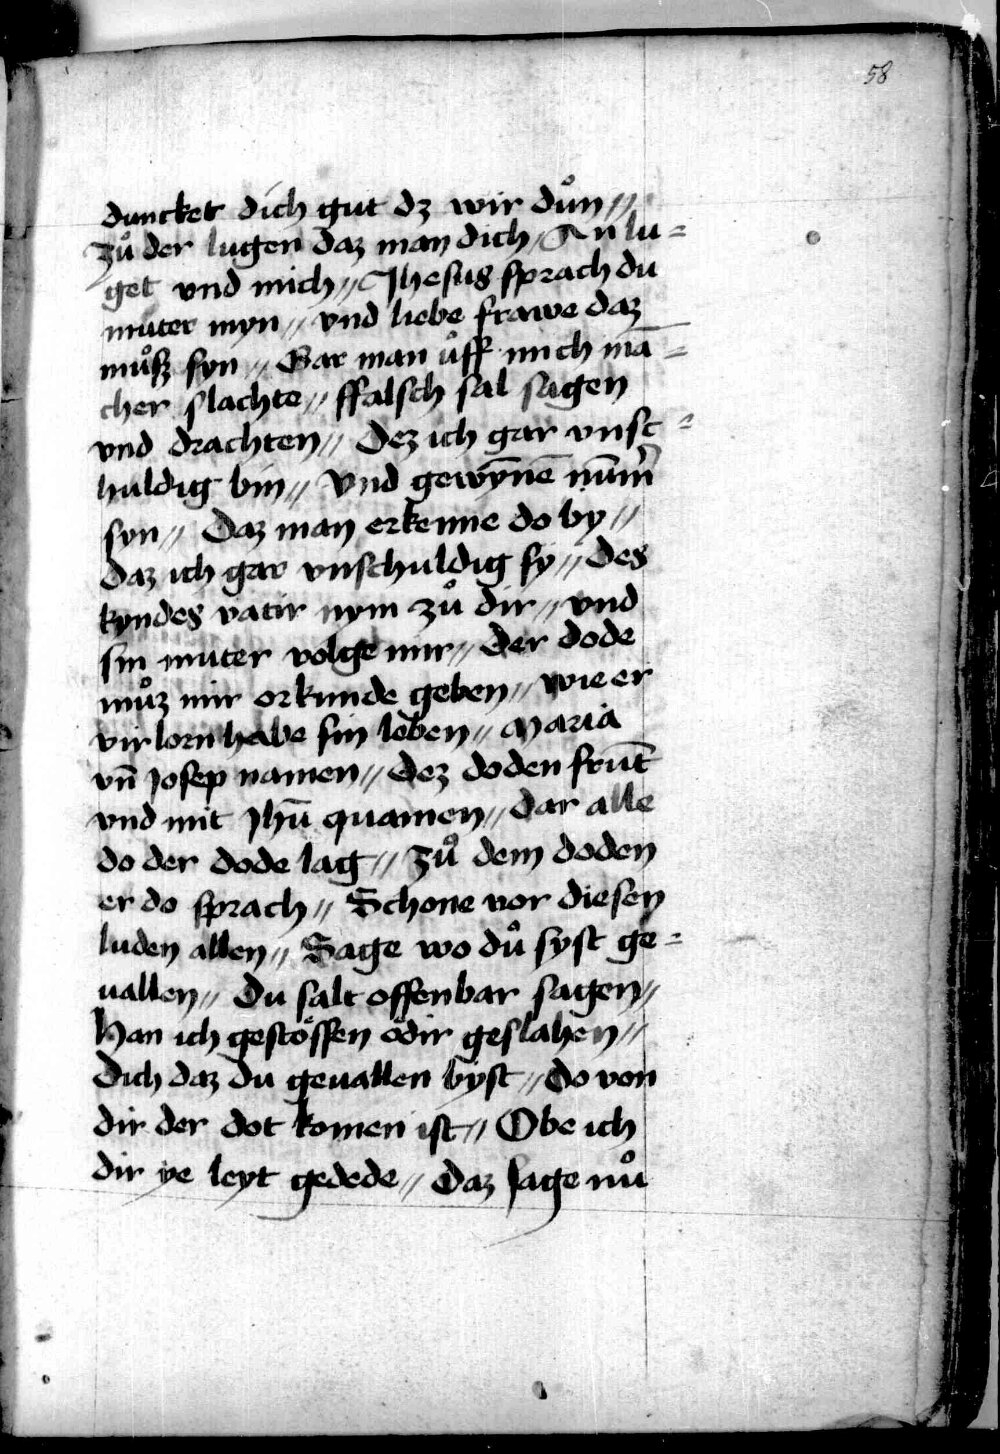 58
duncket dich gut dz wir důn //
zů der lugen daz man dich / An lu=
get vnd mich // Jhesus sprach du
muter myn // vnd liebe frawe daz
můsz syn // Gar man ůff mich mā=
cher slachte // ffalsch sal sagen
vnd drachten // Dez ich gar vnsc=
huldig bin // Vnd gewȳnē nūm̄
syn // Daz man erkenne do by //
daz ich gar vnschuldig sy // Des
kyndes vatir nym zů dir // vnd
sin muter volge mir // Der dode
můz mir orkunde geben // wie er
virlorn habe sin leben // Maria
vn̄ Josep namen // dez doden frūt
vnd mit Jhū quamen // Dar alle
do der dode lag // Zů dem doden
er do sprach // Schone vor diesen
luden allen // Sage wo dů syst ge=
uallen // Du salt offenbar sagen //
Han ich gestössen ödir geslahen //
Dich daz du geuallen byst // Do von
dir der dot komen ist // Obe ich
dir ye leyt gedede // Daz sage nů